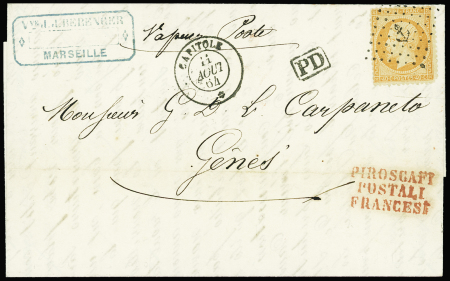 Vve J. J. BERENGER
MARSEILLE
Vapeur Poste
CAPITOLE
11
AOUT
64
PD
Monsieur G. D. L. Carpaneto
Gênes
PIROSCAFI
POSTALI
FRANCESI